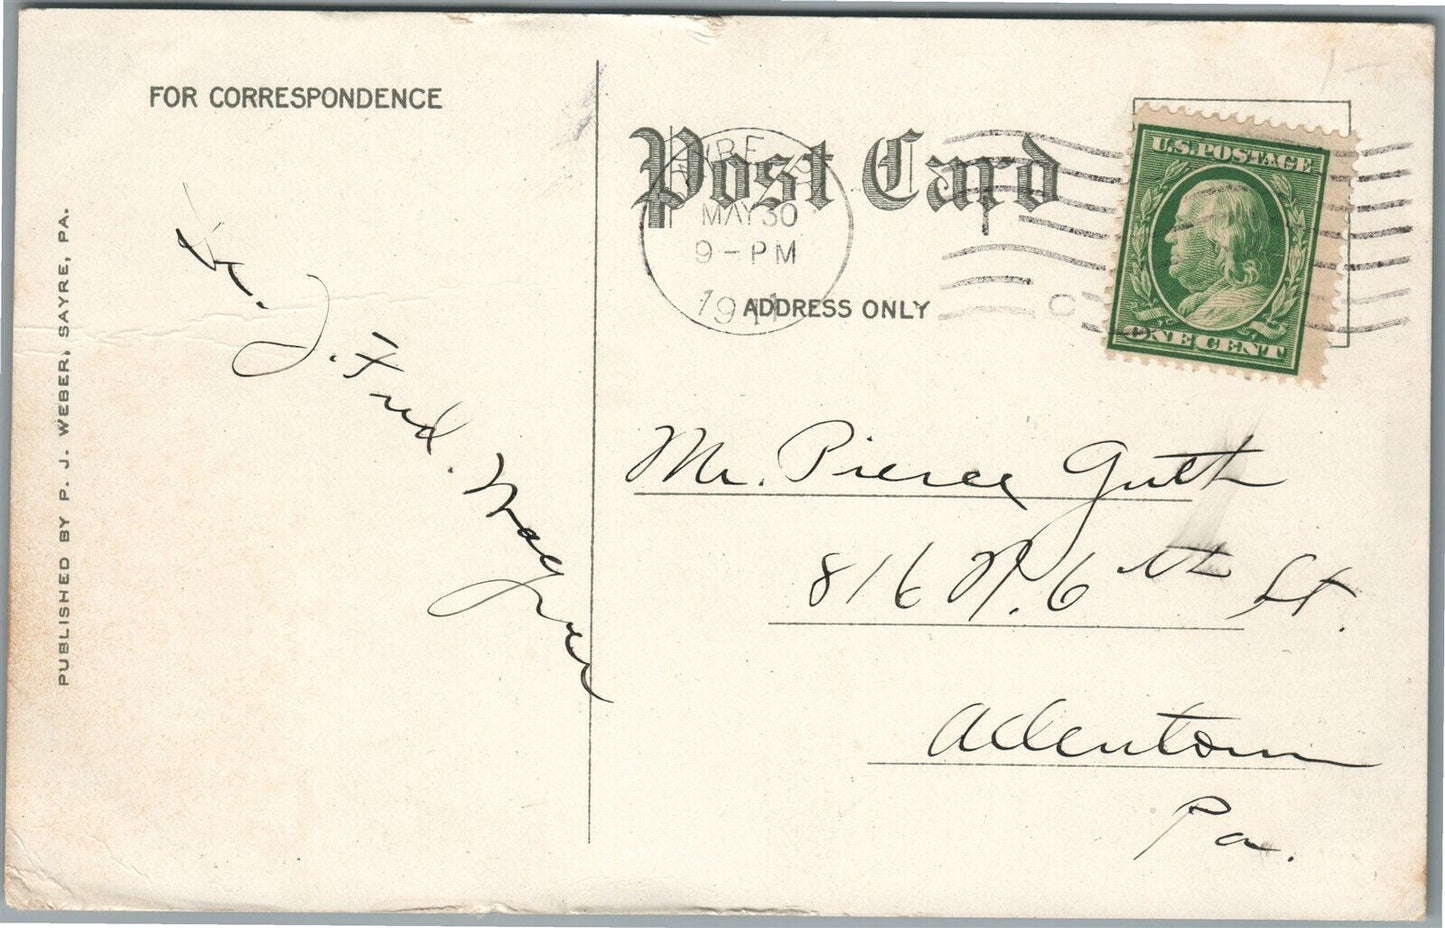 FOR CORRESPONDENCE
PUBLISHED BY P. J. WEBER, SAYRE, PA.
J. Fred. Wagner
Post Card
MAY 30
9 - PM
1911
ADDRESS ONLY
U.S. POSTAGE
ONE CENT
Mr. Pierce Guth
816 N. 6th St.
Allentown
Pa.